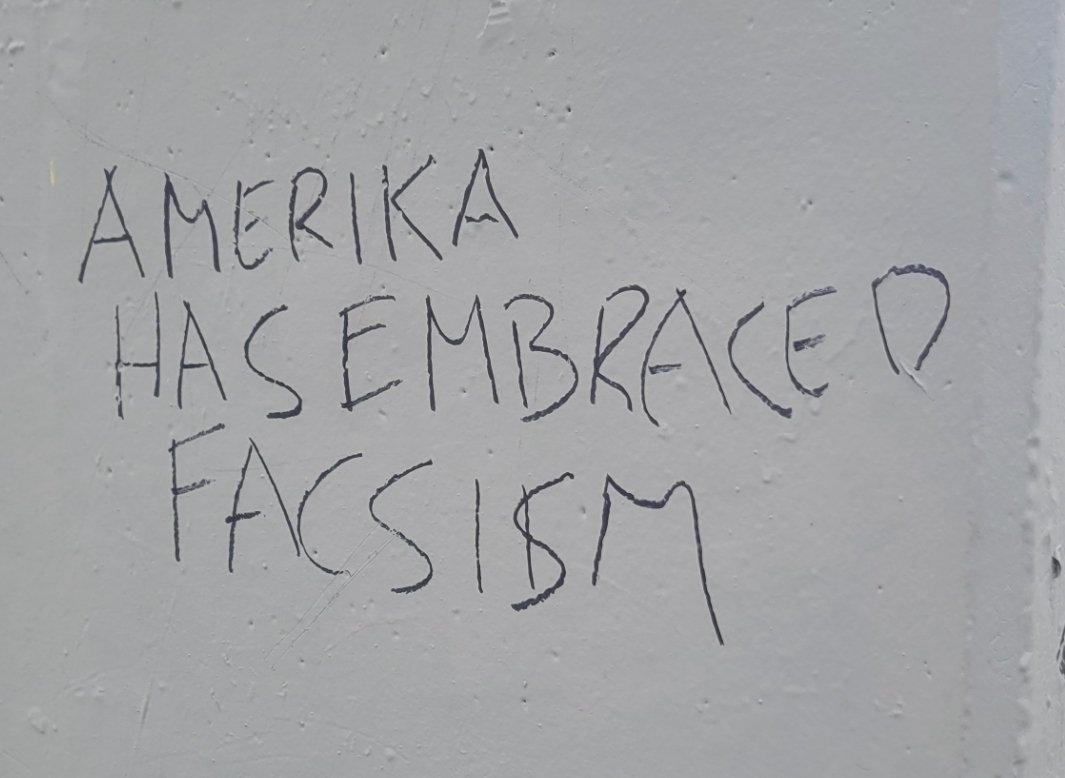 AMERIKA
HAS EMBRACED
FACSISM